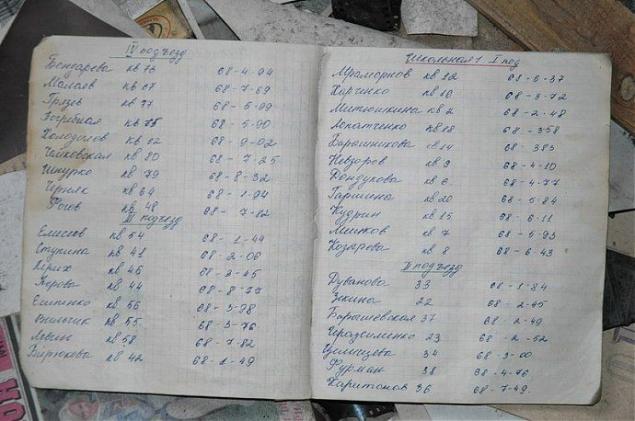 IV подъезд
Бондарева кв 76 68-4-94
Малаев кв 67 68-7-69
Грязев кв 77 68-5-99
Погребная кв 75 68-5-90
Холодилов кв 62 68-9-02
Чайковская кв 80 68-7-25
Шкурко кв 79 68-8-32
Черняк кв 64 68-1-94
Рогов кв 48 68-7-82
III подъезд
Елисеев кв 54 68-1-49
Ступина кв 41 68-2-06
Керих кв 46 68-2-45
Жерова кв 44 68-8-77
Есипенко кв 56 68-3-98
Вильчик кв 55 68-3-76
Левин кв 58 68-7-82
Бирюкова кв 42 68-2-49
Школьная 1 I под
Мраморнов кв 12 68-6-37
Харченко кв 10 68-3-72
Митюшкина кв 2 68-2-48
Лопатченко кв 18 68-358
Барышникова кв 14 68-383
Невзоров кв 3 68-4-10
Дондукова кв 6 68-4-77
Гаршина кв 20 68-5-84
Кудрин кв 15 68-6-11
Мишков кв 7 68-5-93
Козарева кв 8 68-6-43
II подъезд
Дуванова 33 68-1-84
Зыкина 22 68-2-45
Барашевская 37 68-2-49
Герасименко 23 68-2-52
34 68-3-00
Фурман 38 68-4-76
Харитонов 36 68-7-49